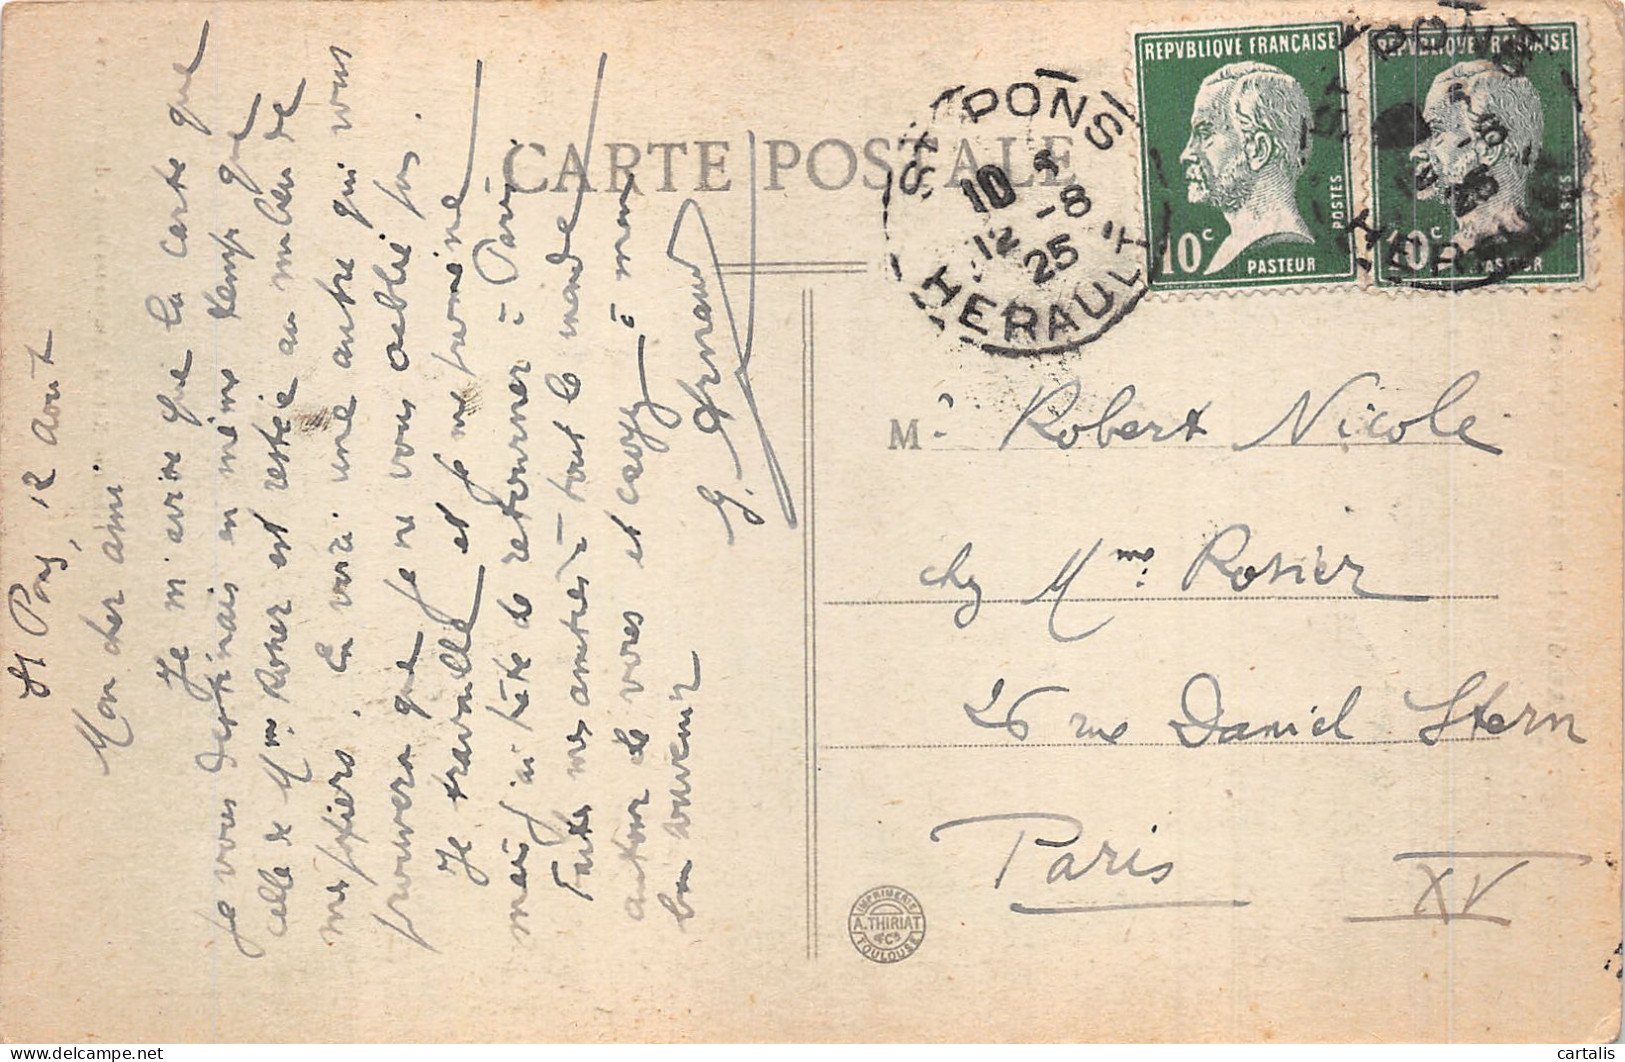 St Pons, 12 août
Mon cher ami
Je m'avise que la carte que
je vous destinais en même temps que
celle de Mme Rosier est restée au milieu de
mes papiers. En voici une autre qui vous
prouvera que je ne vous oublie pas.
Je travaille et je me promène
mais j'ai hâte de retourner à Paris.
Toutes mes amitiés à tout le monde
autour de vous et à mon
bon souvenir
G. Arnaud
CARTE POSTALE
REPVBLIQVE FRANÇAISE
POSTES
10 c
PASTEUR
REPVBLIQVE FRANÇAISE
10 c
PASTEUR
ST PONS
10
12 -8
25
HERAULT
ST PONS
HERAULT
M. Robert Nicole
chez Mme Rosier
26 rue Daniel Stern
Paris XV
IMPRIMERIE
A. THIRIAT
& Cie
TOULOUSE
cartalis